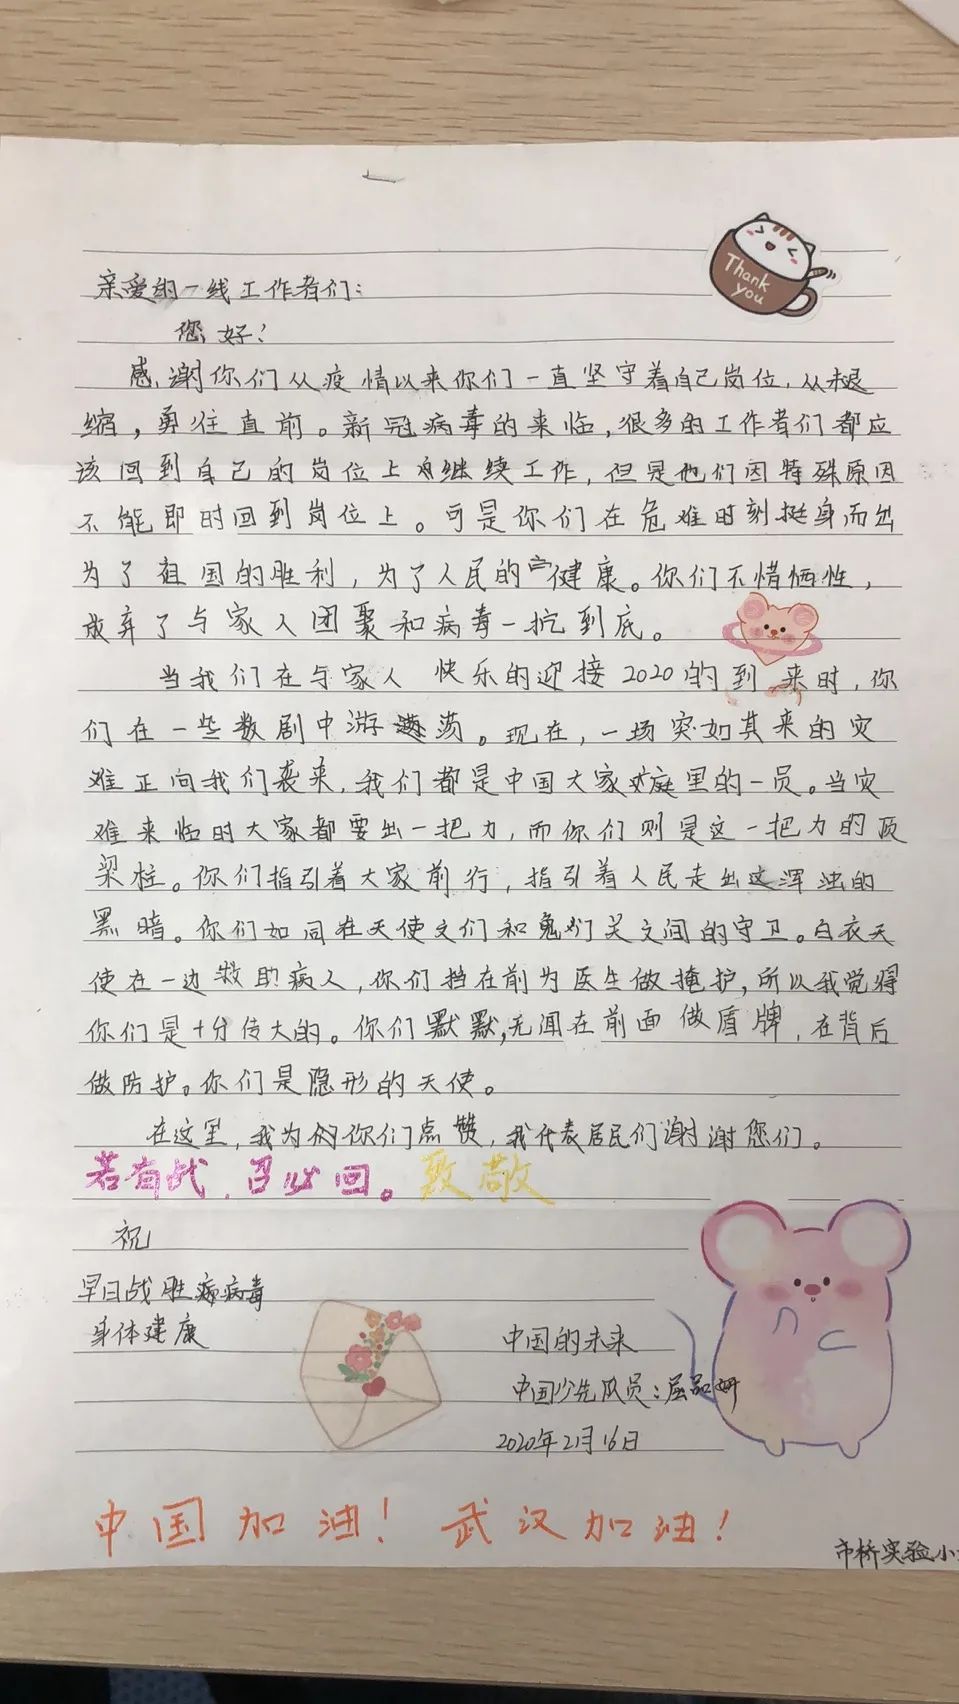 Thank
you
亲爱的一线工作者们：
您好！
感谢你们从疫情以来你们一直坚守着自己岗位，从未退
缩，勇往直前。新冠病毒的来临，很多的工作者们都应
该回到自己的岗位上继续工作，但是他们因特殊原因
不能即时回到岗位上。可是你们在危难时刻挺身而出
为了祖国的胜利，为了人民的健康。你们不惜牺牲，
放弃了与家人团聚和病毒一抗到底。
当我们在与家人 快乐的迎接2020的到来时，你
们在一些数剧中游荡。现在，一场突如其来的灾
难正向我们袭来，我们都是中国大家庭里的一员。当灾
难来临时大家都要出一把力，而你们则是这一把力的顶
梁柱。你们指引着大家前行，指引着人民走出这浑浊的
黑暗。你们如同在天使文们和鬼们关之间的守卫。白衣天
使在一边救助病人，你们挡在前为医生做掩护，所以我觉得
你们是十分伟大的。你们默默无闻在前面做盾牌，在背后
做防护。你们是隐形的天使。
在这里，我为你们点赞，我代表居民们谢谢您们。
若有战，召必回。致敬
祝
早日战胜病毒
身体建康
中国的未来
中国少先队员：屈品妍
2020年2月16日
中国加油！武汉加油！
市桥实验小